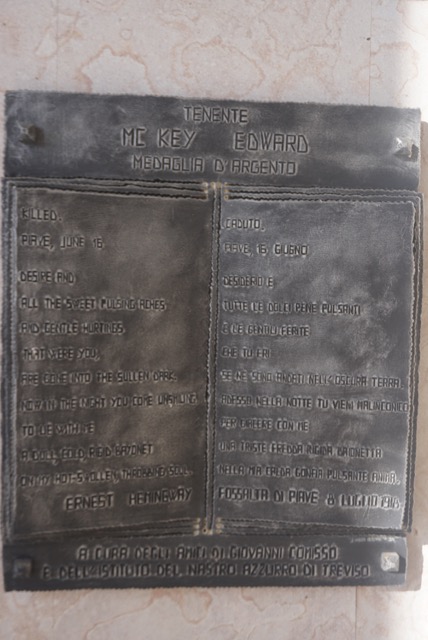 TENENTE
MC KEY EDWARD
MEDAGLIA D'ARGENTO
KILLED,
PIAVE, JUNE 15,
DESIRE AND
ALL THE SWEET PULSING ACHES
AND GENTLE HURTINGS
THAT WERE YOU,
ARE GONE INTO THE SULLEN DARK.
NOW IN THE NIGHT YOU COME UNSMILING
TO LIE WITH ME
A DULL, COLD, RIGID BAYONET
ON MY HOT-SWOLLEN, THROBBING SOUL.
ERNEST HEMINGWAY
CADUTO,
PIAVE, 15, GIUGNO
DESIDERIO E
TUTTE LE DOLCI PENE PULSANTI
E LE GENTILI FERITE
CHE TU ERI
SE NE SONO ANDATI NELL'OSCURA TERRA.
ADESSO NELLA NOTTE TU VIENI MALINCONICO
PER GIACERE CON ME
UNA TRISTE FREDDA RIGIDA BAIONETTA
NELLA MIA CALDA GONFIA PULSANTE ANIMA.
FOSSALTA DI PIAVE 8 LUGLIO
A CURA DEGLI AMICI DI GIOVANNI COMISSO
E DELL'ISTITUTO DEL NASTRO AZZURRO DI TREVISO